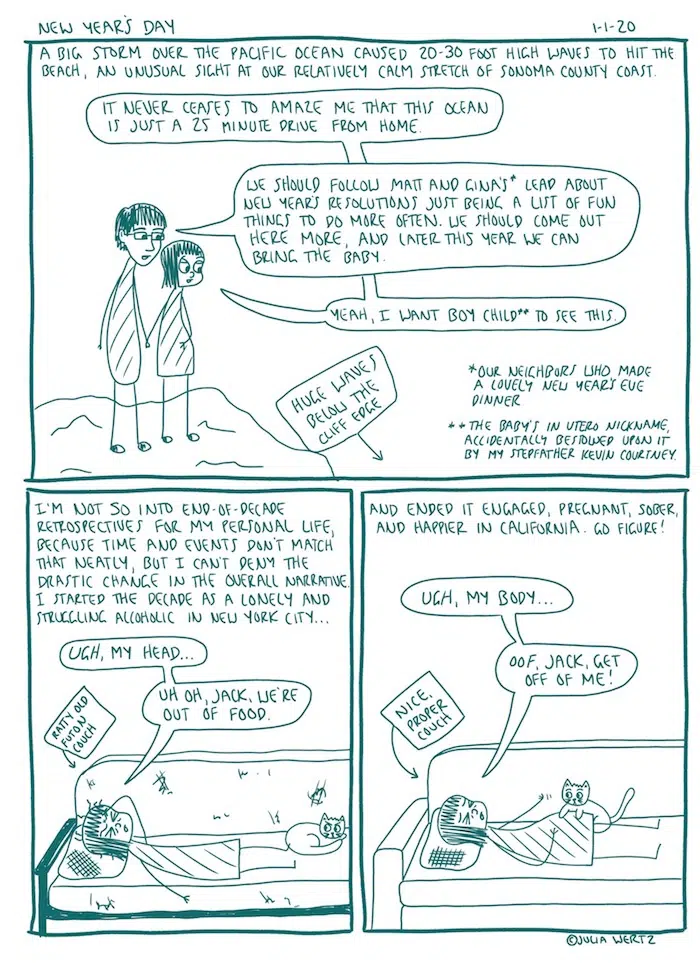 NEW YEAR'S DAY
1-1-20
A BIG STORM OVER THE PACIFIC OCEAN CAUSED 20-30 FOOT HIGH WAVES TO HIT THE
BEACH, AN UNUSUAL SIGHT AT OUR RELATIVELY CALM STRETCH OF SONOMA COUNTY COAST.
IT NEVER CEASES TO AMAZE ME THAT THIS OCEAN
IS JUST A 25 MINUTE DRIVE FROM HOME.
WE SHOULD FOLLOW MATT AND GINA'S* LEAD ABOUT
NEW YEAR'S RESOLUTIONS JUST BEING A LIST OF FUN
THINGS TO DO MORE OFTEN. WE SHOULD COME OUT
HERE MORE, AND LATER THIS YEAR WE CAN
BRING THE BABY.
YEAH, I WANT BOY CHILD** TO SEE THIS.
HUGE WAVES
BELOW THE
CLIFF EDGE
*OUR NEIGHBORS WHO MADE
A LOVELY NEW YEAR'S EVE
DINNER
**THE BABY'S IN UTERO NICKNAME,
ACCIDENTALLY BESTOWED UPON IT
BY MY STEPFATHER KEVIN COURTNEY.
I'M NOT SO INTO END-OF-DECADE
RETROSPECTIVES FOR MY PERSONAL LIFE,
BECAUSE TIME AND EVENTS DON'T MATCH
THAT NEATLY, BUT I CAN'T DENY THE
DRASTIC CHANGE IN THE OVERALL NARRATIVE.
I STARTED THE DECADE AS A LONELY AND
STRUGGLING ALCOHOLIC IN NEW YORK CITY...
UGH, MY HEAD...
UH OH, JACK, WE'RE
OUT OF FOOD.
RATTY OLD
FUTON
COUCH
AND ENDED IT ENGAGED, PREGNANT, SOBER,
AND HAPPIER IN CALIFORNIA. GO FIGURE!
UGH, MY BODY...
OOF, JACK, GET
OFF OF ME!
NICE,
PROPER
COUCH
©JULIA WERTZ